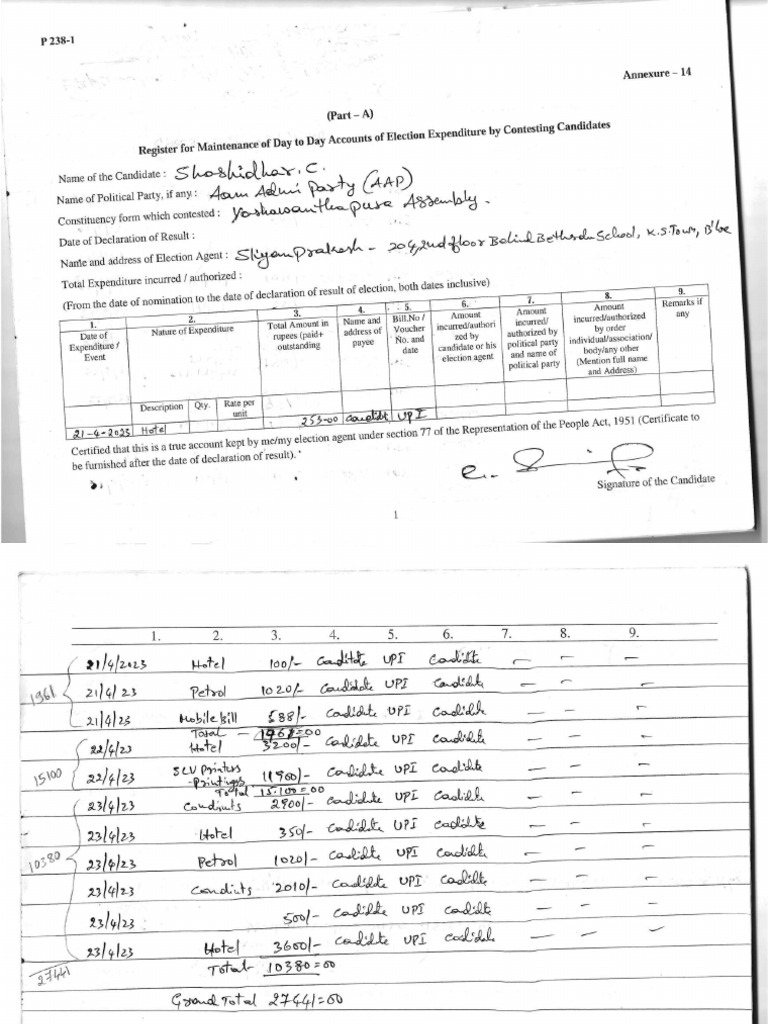 P 238-1
Annexure – 14
(Part – A)
Register for Maintenance of Day to Day Accounts of Election Expenditure by Contesting Candidates
Name of the Candidate : Shashidhar. C.
Name of Political Party, if any : Aam Admi Party (AAP)
Constituency form which contested : Yashawanthapura Assembly.
Date of Declaration of Result :
Name and address of Election Agent : Prakash – 204, 2nd floor Behind School, K.S.Town, B'lre
Total Expenditure incurred / authorized :
(From the date of nomination to the date of declaration of result of election, both dates inclusive)
1. 2. 3. 4. 5. 6. 7. 8. 9.
Date of Expenditure / Event
Nature of Expenditure
Total Amount in rupees (paid+ outstanding
Name and address of payee
Bill.No / Voucher No. and date
Amount incurred/authori zed by candidate or his election agent
Amount incurred/ authorized by political party and name of political party
Amount incurred/authorized by order individual/association/ body/any other (Mention full name and Address)
Remarks if any
Description Qty. Rate per unit
21-4-2023 Hotel 253-00 Candidt UPI
Certified that this is a true account kept by me/my election agent under section 77 of the Representation of the People Act, 1951 (Certificate to
be furnished after the date of declaration of result).
Signature of the Candidate
1
1. 2. 3. 4. 5. 6. 7. 8. 9.
21/4/2023 Hotel 100/- Canditate UPI Candidte – – –
1961 21/4/23 Petrol 1020/- Candidate UPI Candidte – – –
21/4/23 Mobile bill 588/- Candidte UPI Candidte – – –
Total – 1961=00
22/4/23 Hotel 3200/- Candidte UPI Candidte – – –
15100 22/4/23 SLV Printers - Printings 11900/- Candidte UPI Candidte – – –
Total 15.100=00
23/4/23 Conduits 2900/- Candidte UPI Candidte – – –
23/4/23 Hotel 350/- Candidte UPI Candidte – – –
10380 23/4/23 Petrol 1020/- Candidte UPI Candidte – – –
23/4/23 Conduits 2010/- Candidte UPI Candidte – – –
23/4/23 500/- Candidte UPI Candidte – – –
23/4/23 Hotel 3600/- Candidte UPI Candidte – – –
27441 Total- 10380=00
Grand Total 27441=00